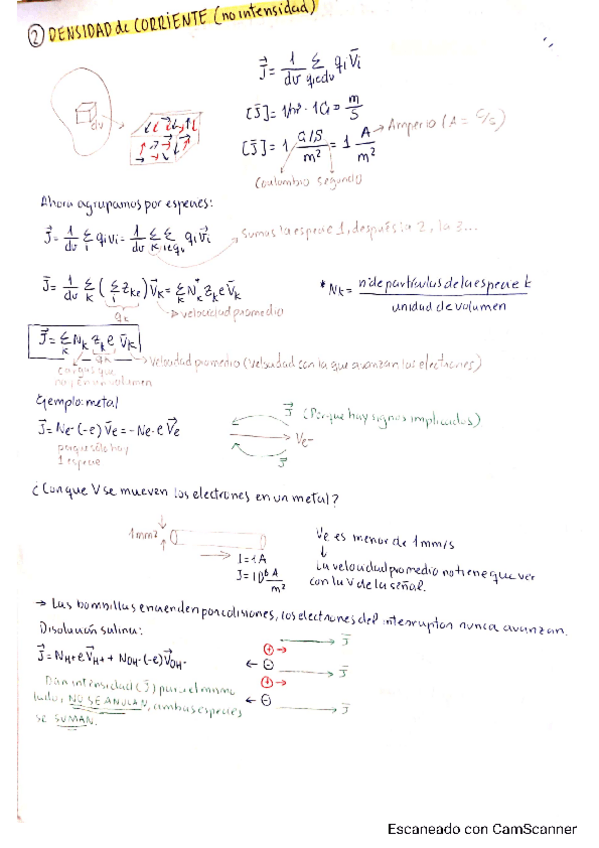 ② DENSIDAD de CORRIENTE (no intensidad)
J⃗ = 1/dv Σ qi∈dv qi v⃗i
dv
[J̄] = 1/m³ · 1C · m/s
[J̄] = 1 C/S / m² = 1 A/m² → Amperio (A = C/s)
Coulombio segundo
Ahora agrupamos por especies:
J⃗ = 1/dv Σi qi vi = 1/dv Σk Σi∈qk qi v⃗i → Sumas la especie 1, después la 2, la 3...
J̄ = 1/dv Σk (Σi zke) v̄k = Σk Nk* zk e v̄k
* Nk = nº de partículas de la especie k / unidad de volumen
qk
→ velocidad promedio
J⃗ = Σk Nk zk e v̄k
qk
→ velocidad promedio (velocidad con la que avanzan los electrones)
cargas que
hay en un volumen
Ejemplo: metal
J⃗ (Porque hay signos implicados)
J̄ = Ne- (-e) v̄e = -Ne- e v⃗e
Ve-
porque sólo hay
1 especie
J⃗
¿Con que V se mueven los electrones en un metal?
1mm²
Ve es menor de 1mm/s
↓
I = 1A
J = 10⁶ A/m²
La velocidad promedio no tiene que ver
con la V de la señal.
→ Las bombillas encienden por colisiones, los electrones del interruptor nunca avanzan.
Disolución salina:
J⃗ = NH+ e v̄H+ + NOH- (-e) v̄OH-
⊕ → J̄
← ⊖ J̄
⊕ →
← ⊖ J̄
Dan intensidad (J̄) para el mismo
lado, NO SE ANULAN, ambas especies
se SUMAN.
Escaneado con CamScanner